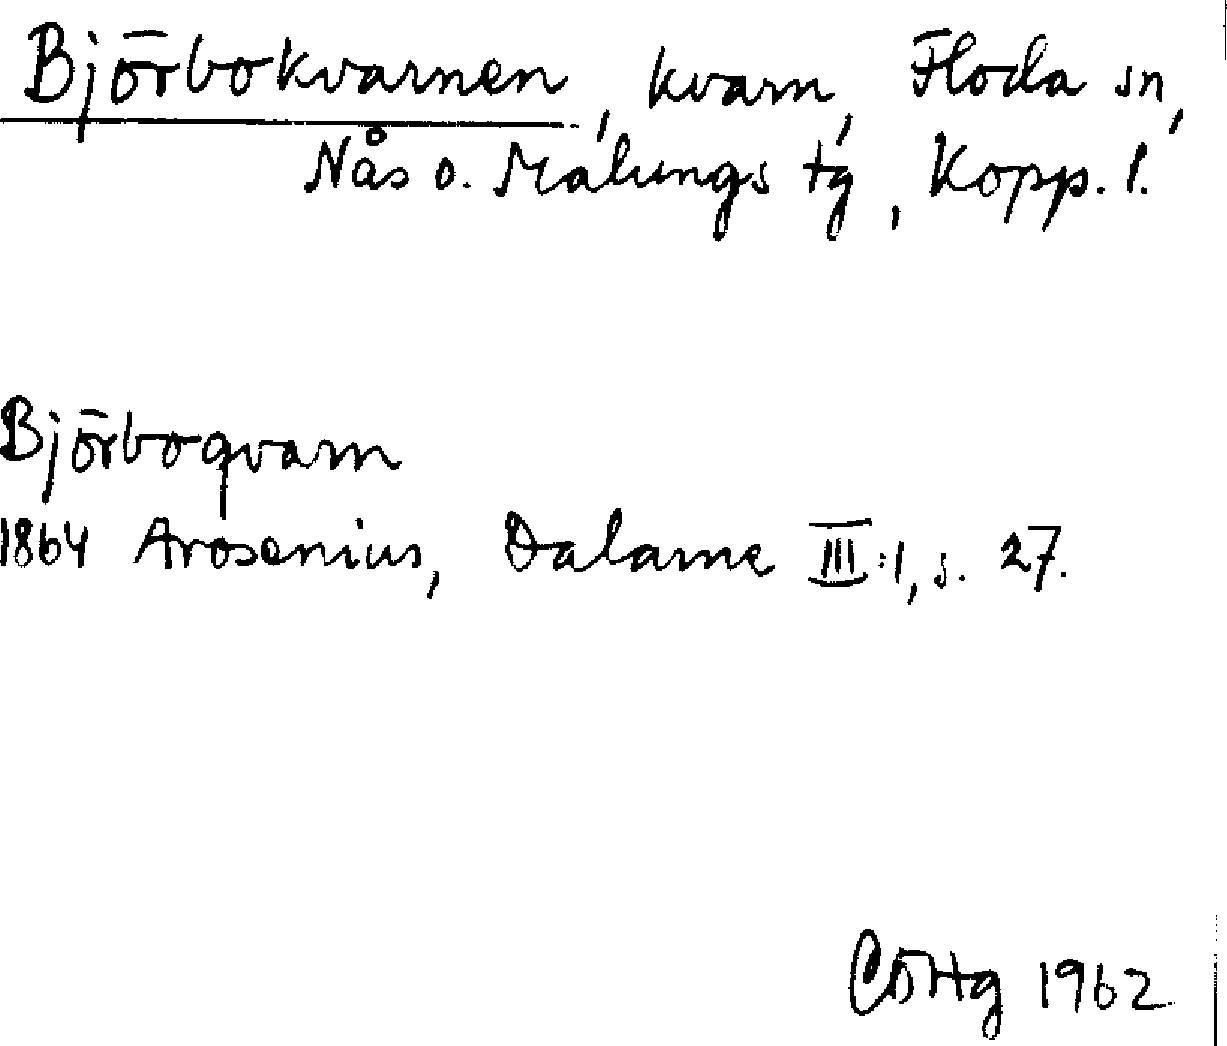 Björbokvarnen, kvarn, Floda sn,
Nås o. Malungs tg, Kopp. l.
Björboqvarn
1864 Arosenius, Dalarne III:1, s. 27.
CÖHg 1962